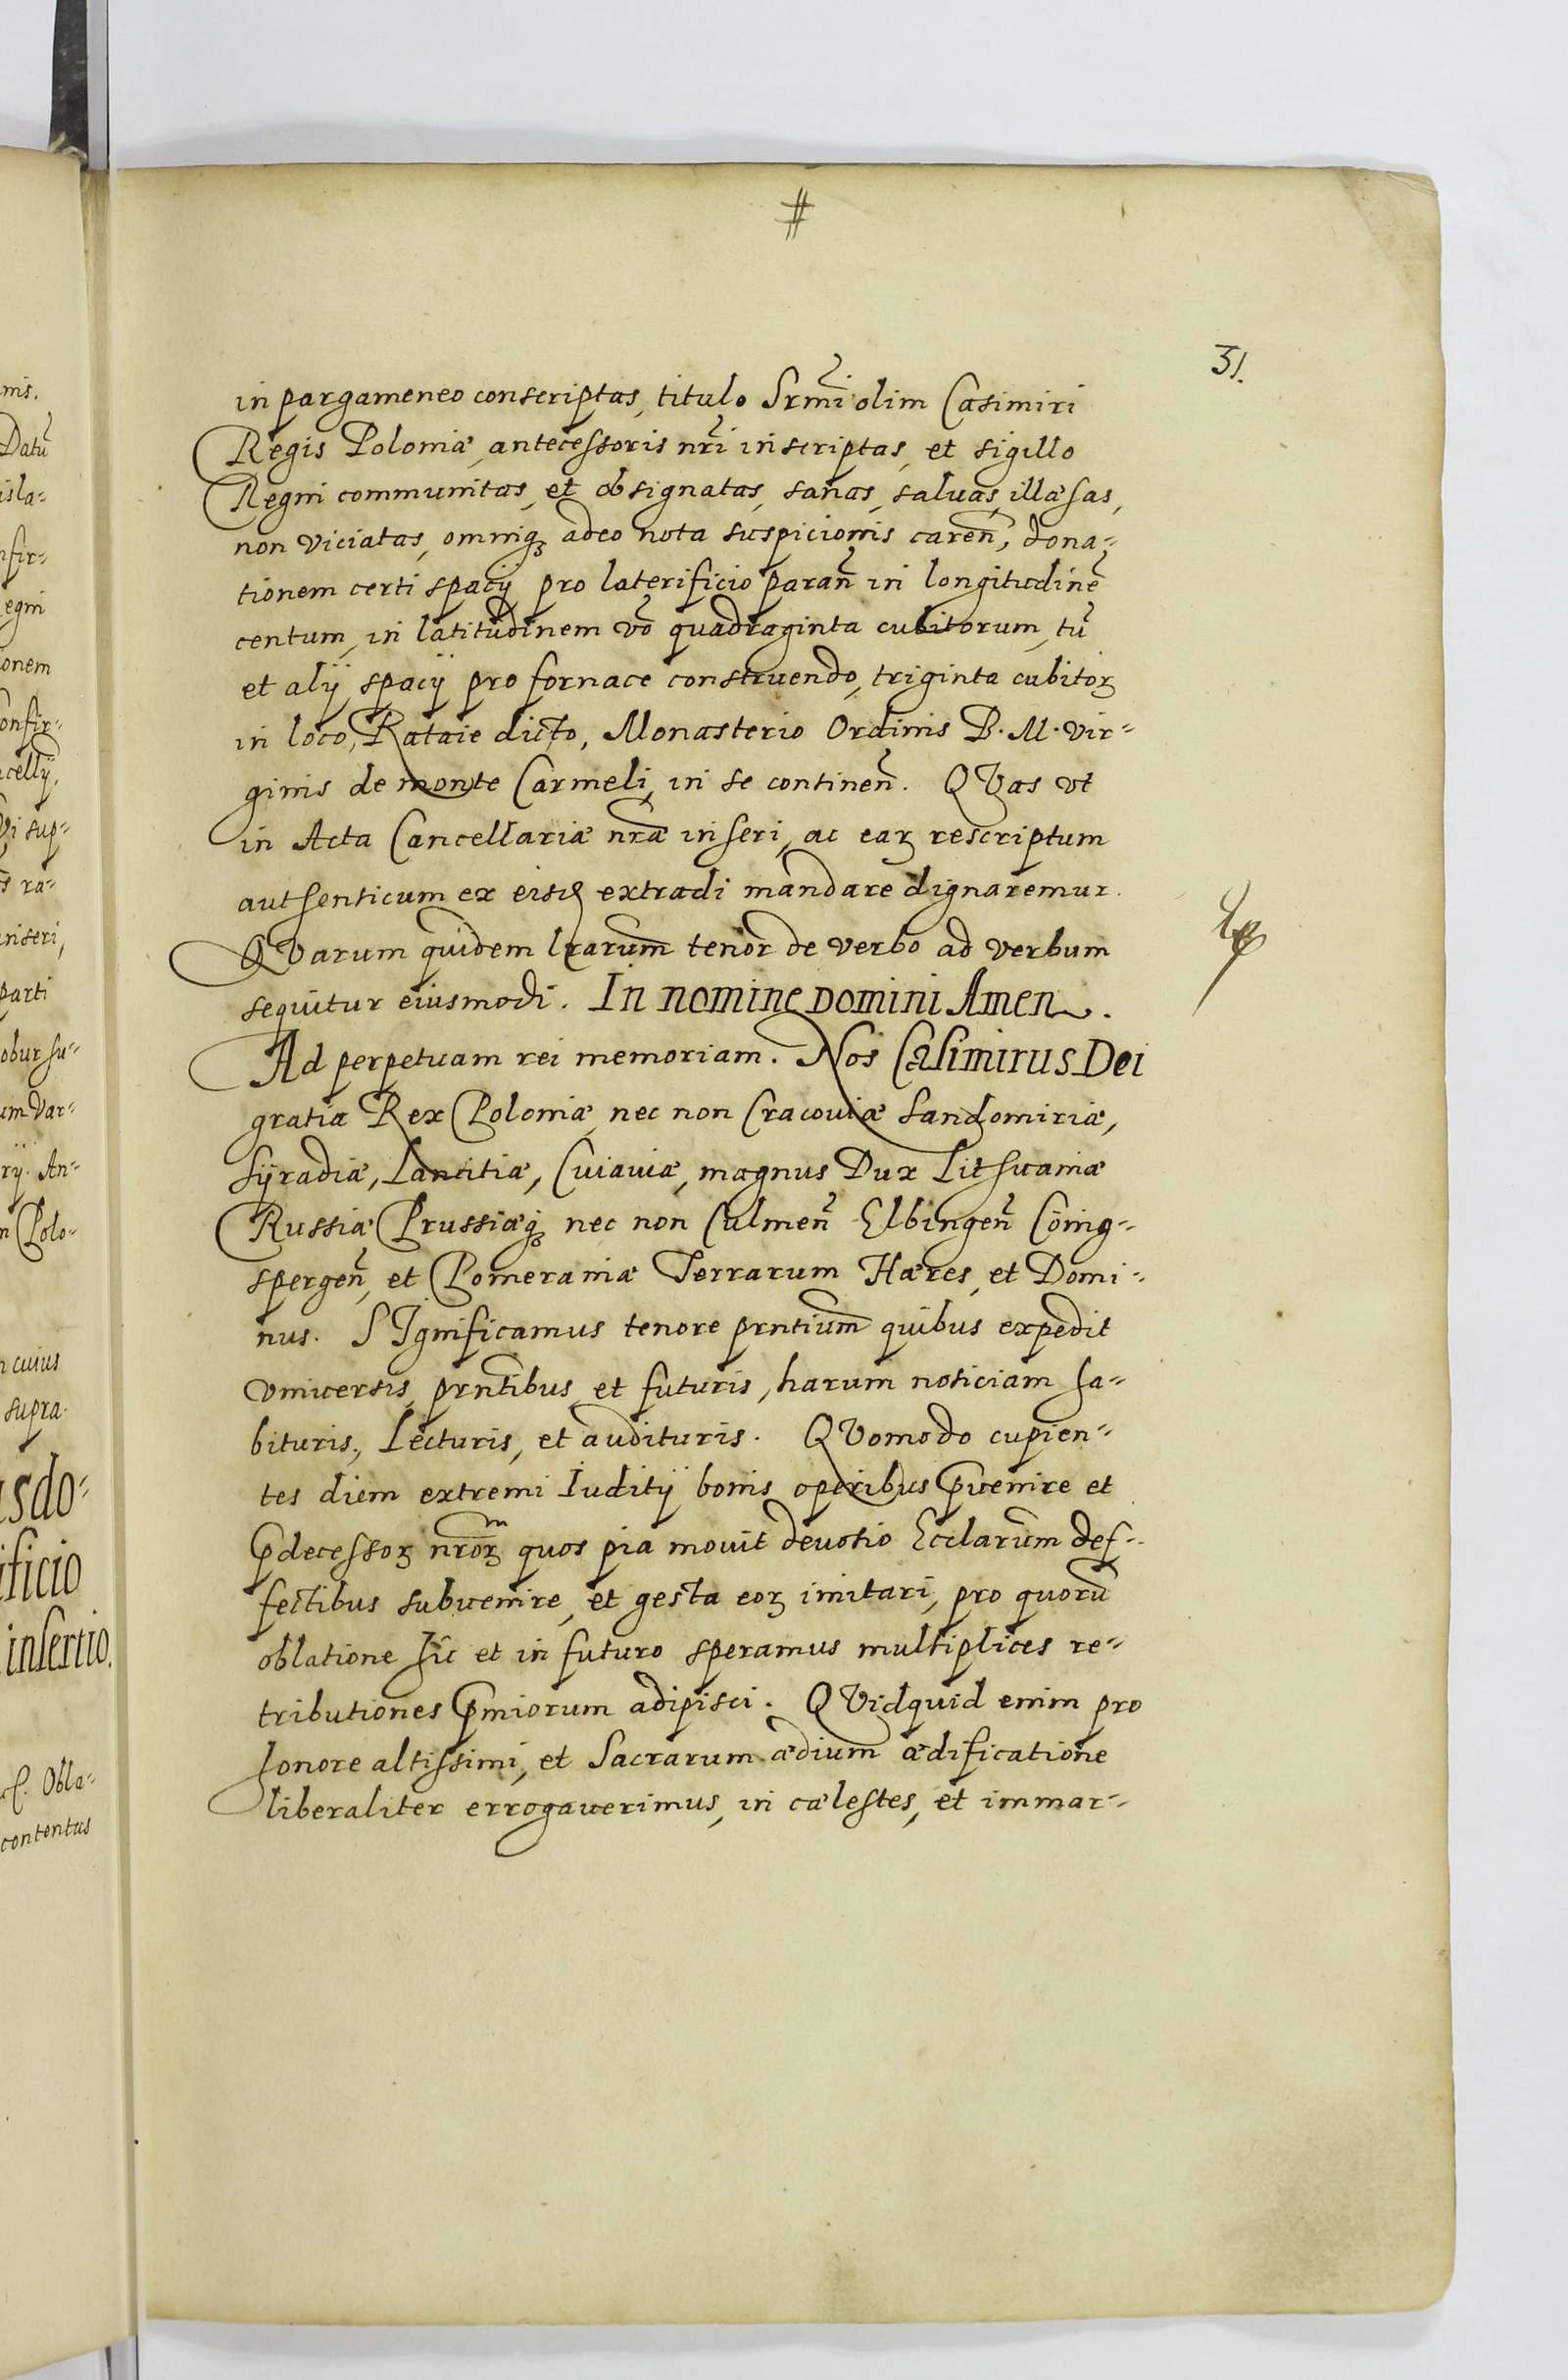 #
31.
in pargameneo conscriptas, titulo Srm̃i olim Casimiri
Regis Poloniæ, antecessoris nr̃i inscriptas, et sigillo
Regni communitas, et obsignatas, sanas, saluas, illæsas,
non viciatas, omniqꝫ adeo nota suspicionis careñ, dona-
tionem certi spacÿ pro laterificio parañ in longitudinẽ
centum, in latitudinem vo͂ quadraginta cubitorum, tũ
et alÿ spacÿ pro fornace construendo, triginta cubitoꝝ
in loco, Rataie dicto, Monasterio Ordinis B. M. Vir-
ginis de monte Carmeli, in se continen͂. QVas vt
in Acta Cancellariæ nr̃æ inseri, ac eaꝝ rescriptum
authenticum ex eisd extradi mandare dignaremur.
QVarum quidem lrarum tenor de verbo ad verbum
sequitur eiusmodi. In nomine Domini Amen.
Ad perpetuam rei memoriam. Nos Casimirus Dei
gratia Rex Poloniæ, nec non Cracouiæ Sandomiriæ,
Syradiæ, Lancitiæ, Cuiauiæ, magnus Dux Lithuaniæ
Russiæ Prussiæqꝫ nec non Culmeñ Elbingeñ Cöing-
spergeñ, et Pomeraniæ Terrarum Hæres, et Domi-
nus. SIgnificamus tenore prntium quibus expedit
vniuersis, prñtibus et futuris, harum noticiam ha-
bituris, Lecturis, et audituris. QVomodo cupien-
tes diem extremi Iuditÿ bonis operibus p̃uenire et
p̃decessoꝝ nr̃oꝝ quos pia mouit deuotio Ecclarum def-
fectibus subuenire, et gesta eoꝝ imitari, pro quorũ
oblatione hic et in futuro speramus multiplices re-
tributiones p̃miorum adipisci. QVidquid enim pro
honore altissimi, et Sacrarum ædium ædificatione
liberaliter errogauerimus, in cælestes, et immar-